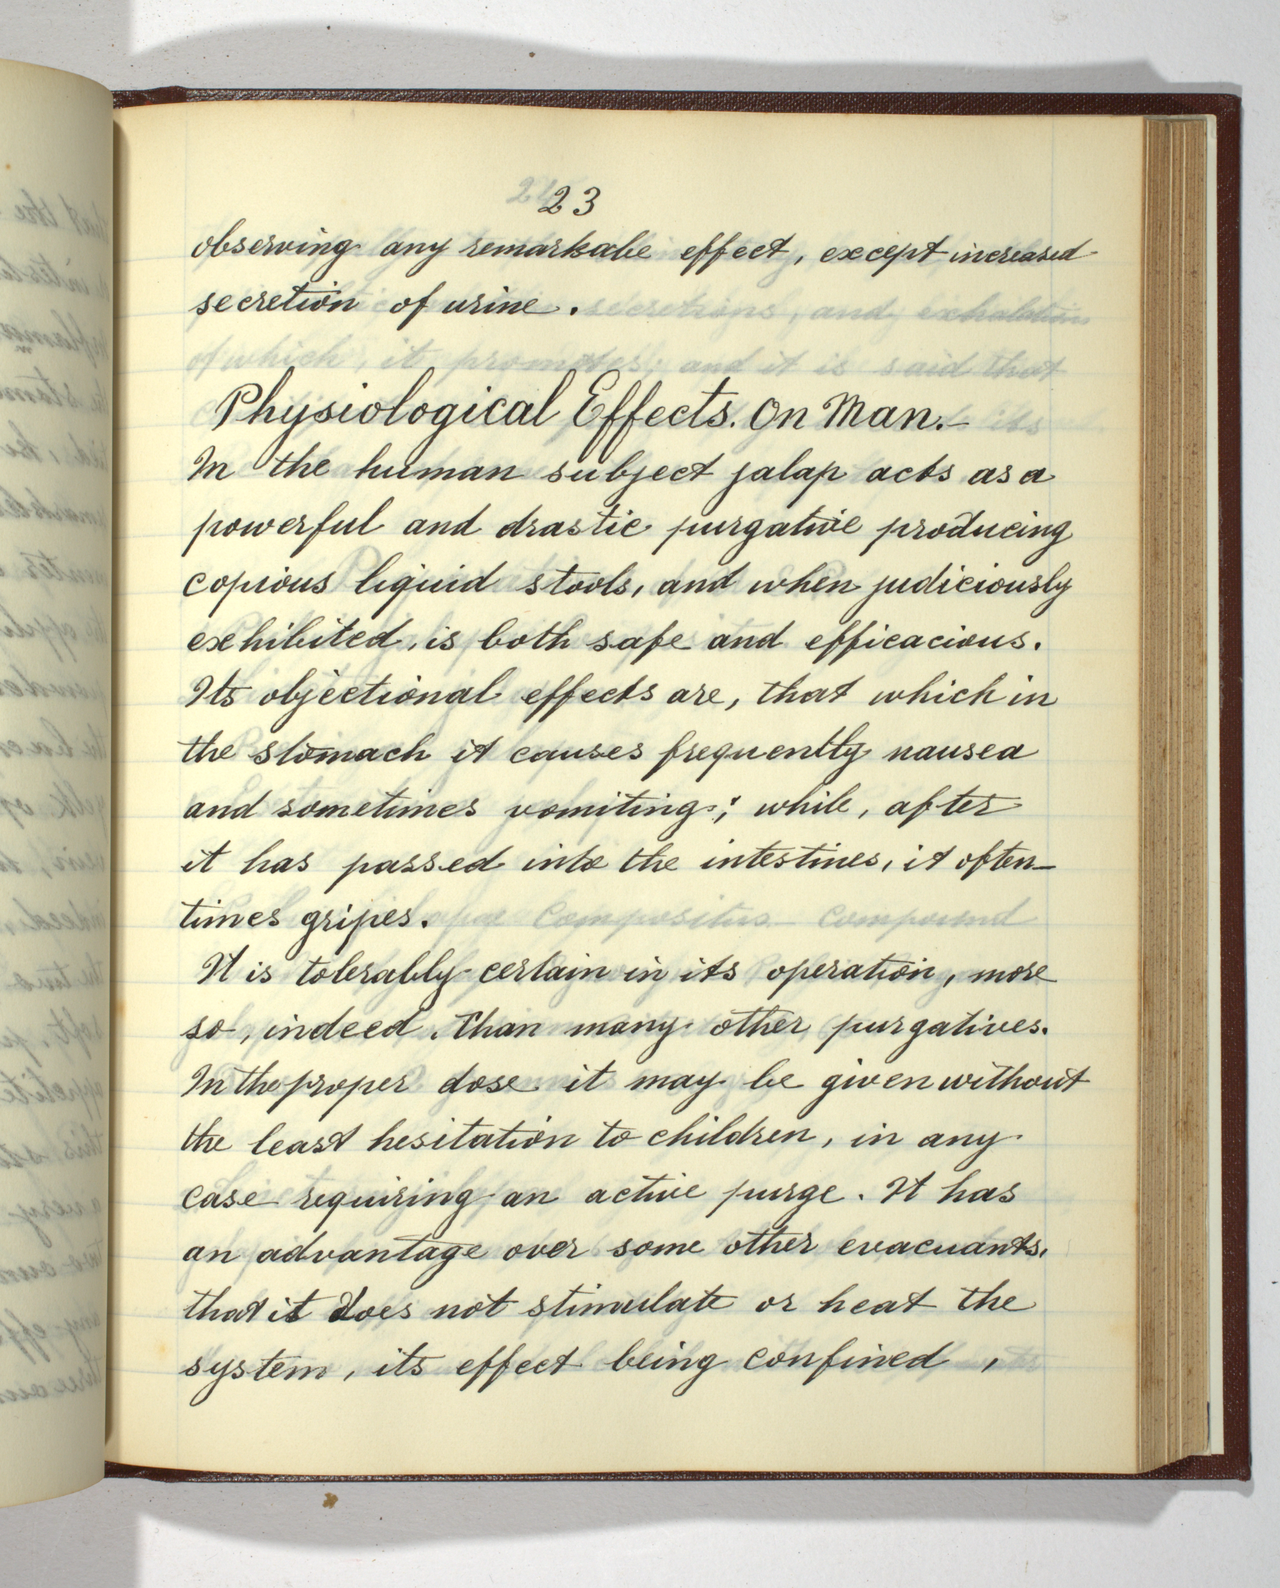 23
observing any remarkabe effect, except increased
secretion of urine.
Physiological Effects. On Man.-
In the human subject jalap acts as a
powerful and drastic purgative producing
copious liquid stools, and when judiciously
exhibited, is both safe and efficacious.
Its objectional effects are, that which in
the stomach it causes frequently nausea
and sometimes vomiting; while, after
it has passed into the intestines, it often-
times gripes.
It is tolerably certain in its operation, more
so, indeed, than many other purgatives.
In the proper dose it may be given without
the least hesitation to children, in any
case requiring an active purge. It has
an advantage over some other evacuants,
that it does not stimulate or heat the
system, its effect being confined,